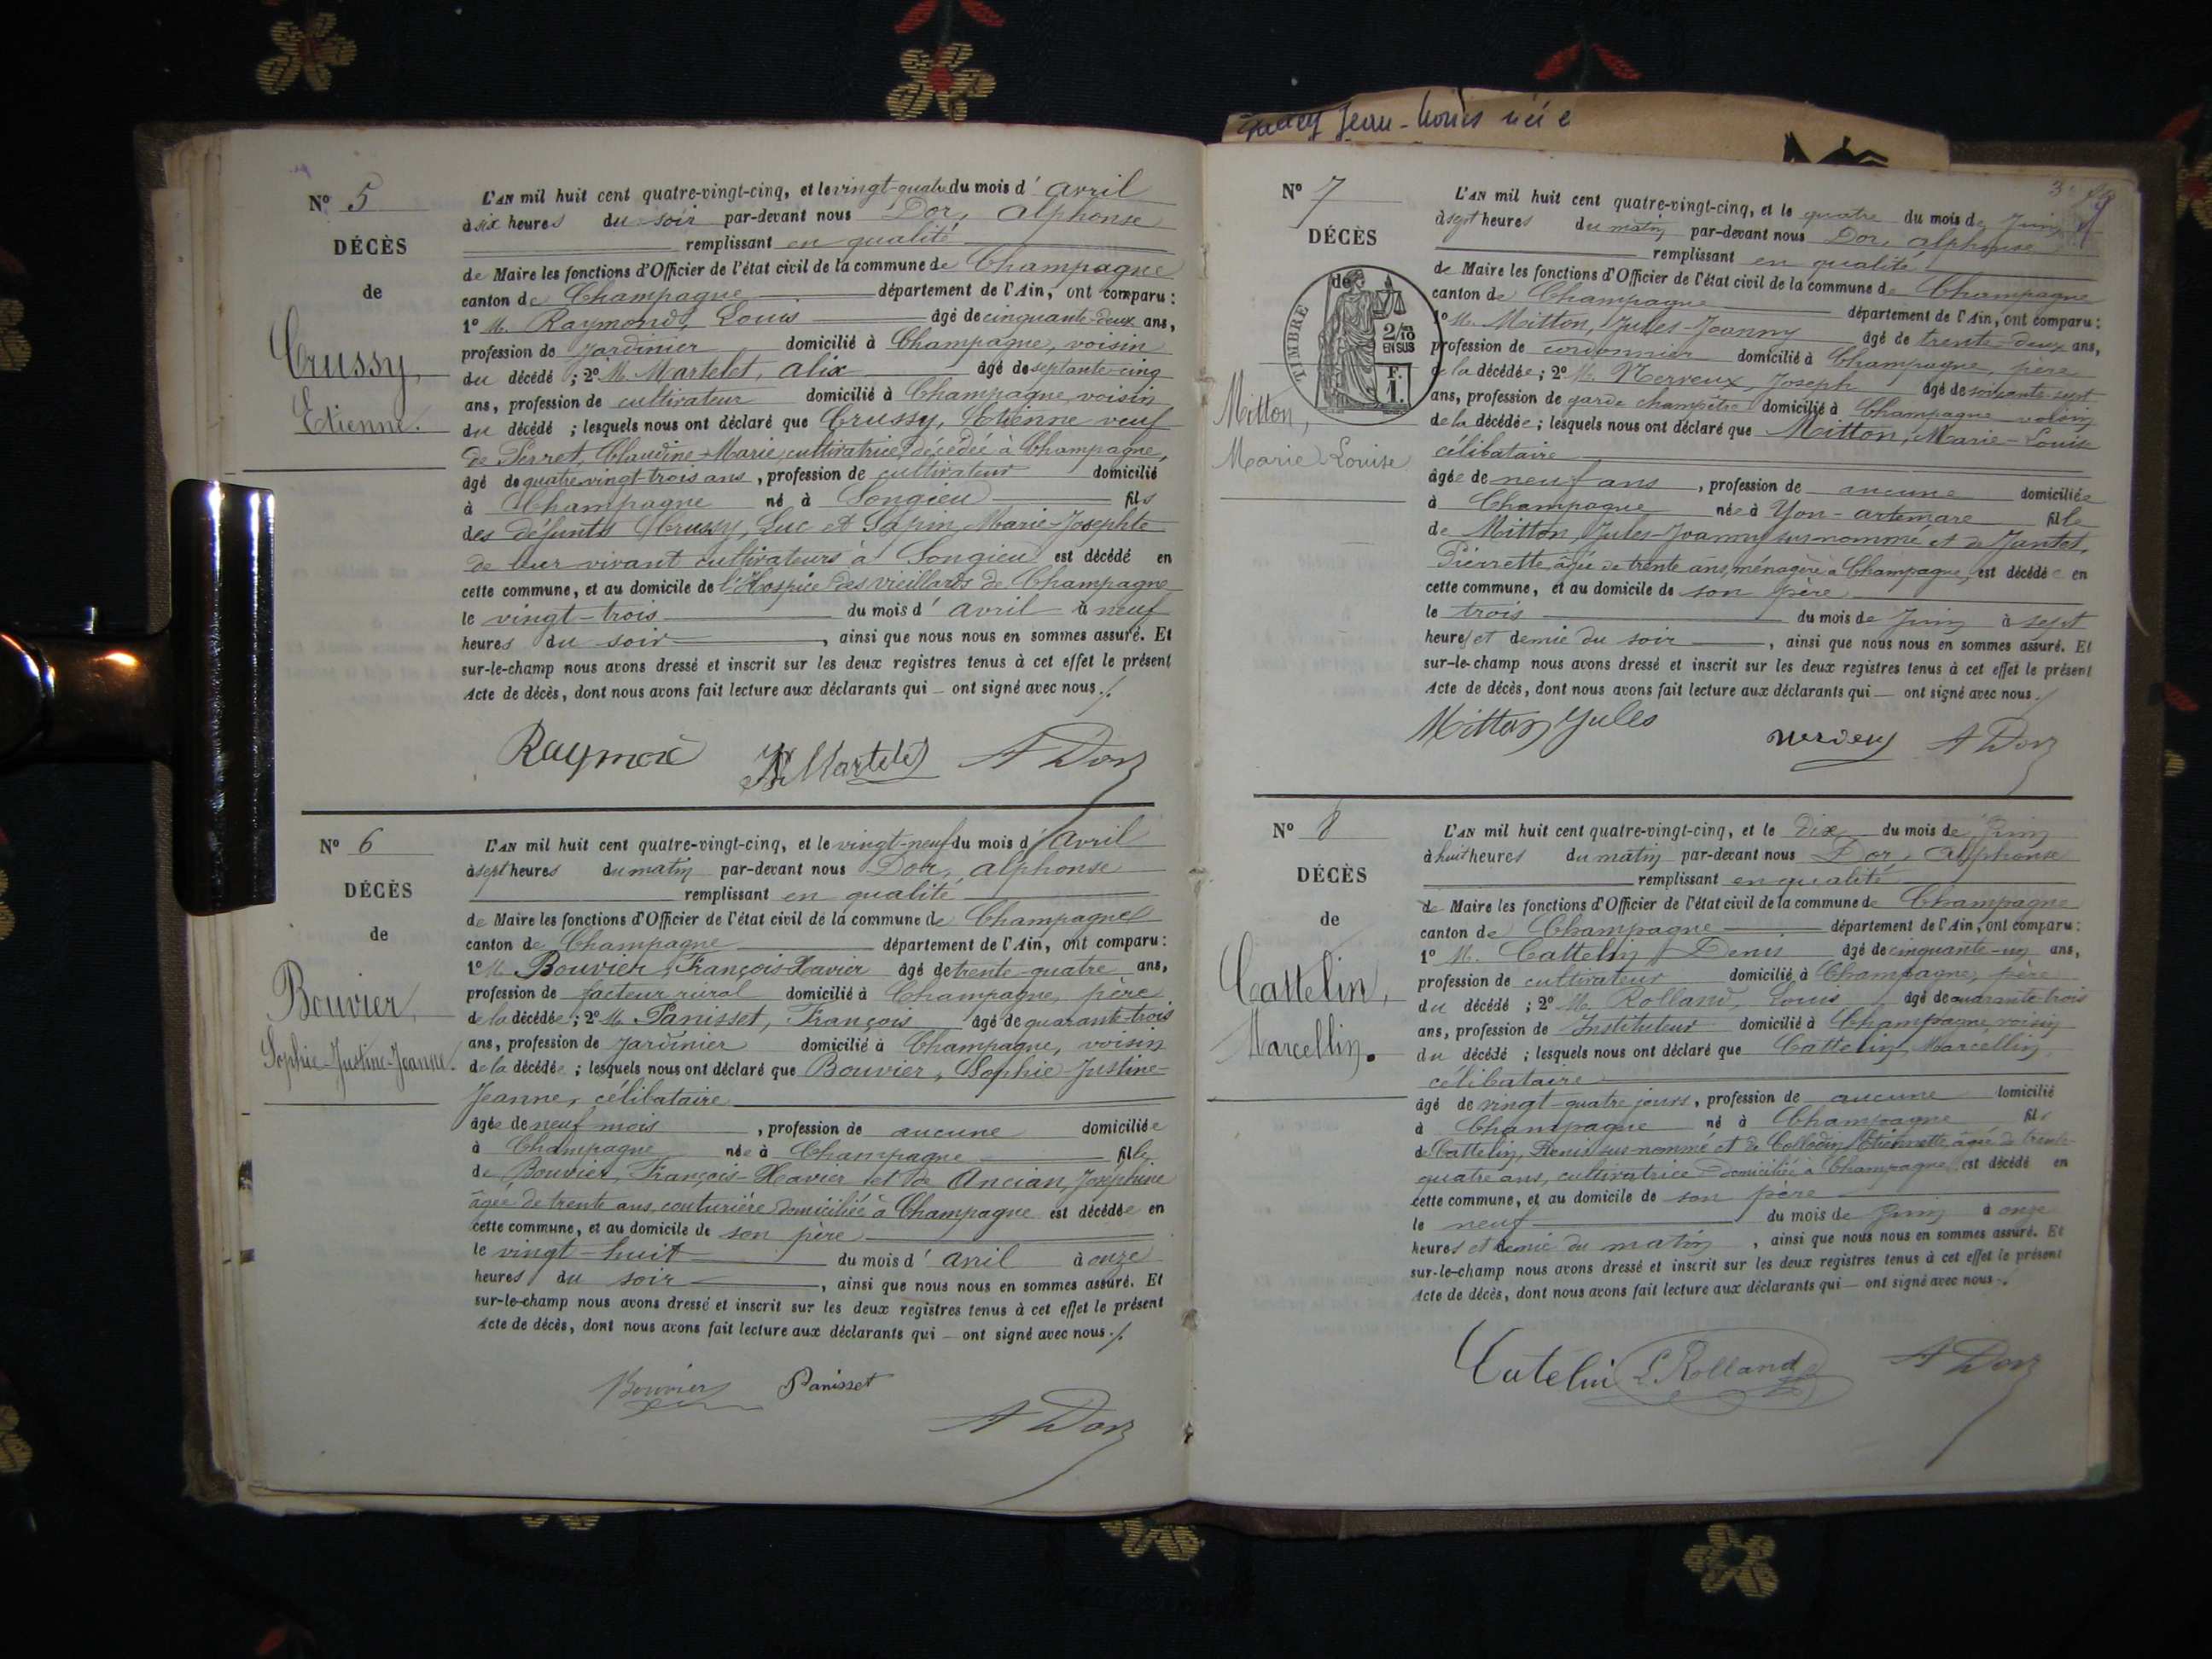 Jean-Louis née
N° 5
DÉCÈS
de
Crussy,
Etienne.
L'AN mil huit cent quatre-vingt-cinq, et le vingt-quatre du mois d'avril
à six heures du soir par-devant nous Dor, Alphonse
remplissant en qualité
de Maire les fonctions d'Officier de l'état civil de la commune de Champagne
canton de Champagne département de l'Ain, ont comparu :
1° M. Raymond, Louis âgé de cinquante-deux ans,
profession de jardinier domicilié à Champagne, voisin
du décédé ; 2° M. Martelet, Alix âgé de septante-cinq
ans, profession de cultivateur domicilié à Champagne, voisin
du décédé ; lesquels nous ont déclaré que Crussy, Etienne veuf
de Perret, Claudine-Marie, cultivatrice décédée à Champagne,
âgé de quatre-vingt-trois ans, profession de cultivateur domicilié
à Champagne né à Songieu fils
des défunts Crussy, Luc et Sapin, Marie-Josephte
de leur vivant cultivateurs à Songieu est décédé en
cette commune, et au domicile de l'Hospice des vieillards de Champagne
le vingt-trois du mois d'avril à neuf
heures du soir, ainsi que nous nous en sommes assuré. Et
sur-le-champ nous avons dressé et inscrit sur les deux registres tenus à cet effet le présent
Acte de décès, dont nous avons fait lecture aux déclarants qui — ont signé avec nous ./.
Raymond Martelet A Dor
N° 6
DÉCÈS
de
Bouvier,
Sophie-Justine-Jeanne.
L'AN mil huit cent quatre-vingt-cinq, et le vingt-neuf du mois d'avril
à sept heures du matin par-devant nous Dor, Alphonse
remplissant en qualité
de Maire les fonctions d'Officier de l'état civil de la commune de Champagne
canton de Champagne département de l'Ain, ont comparu :
1° M. Bouvier, François-Xavier âgé de trente-quatre ans,
profession de facteur rural domicilié à Champagne, père
de la décédée ; 2° M. Panisset, François âgé de quarante-trois
ans, profession de jardinier domicilié à Champagne, voisin
de la décédée ; lesquels nous ont déclaré que Bouvier, Sophie-Justine-
Jeanne, célibataire
âgée de neuf mois, profession de aucune domiciliée
à Champagne née à Champagne fille
de Bouvier, François-Xavier et de Ancian, Joséphine
âgée de trente ans, couturière domiciliée à Champagne est décédée en
cette commune, et au domicile de son père
le vingt-huit du mois d'avril à onze
heures du soir, ainsi que nous nous en sommes assuré. Et
sur-le-champ nous avons dressé et inscrit sur les deux registres tenus à cet effet le présent
Acte de décès, dont nous avons fait lecture aux déclarants qui — ont signé avec nous ./.
Bouvier Panisset
A Dor
N° 7
DÉCÈS
de
TIMBRE
2/10
EN SUS
F.
1.
Mitton,
Marie-Louise
L'AN mil huit cent quatre-vingt-cinq, et le quatre du mois de Juin
à sept heures du matin par-devant nous Dor, Alphonse
remplissant en qualité
de Maire les fonctions d'Officier de l'état civil de la commune de Champagne
canton de Champagne département de l'Ain, ont comparu :
1° M. Mitton, Jules-Joanny âgé de trente-deux ans,
profession de cordonnier domicilié à Champagne, père
de la décédée ; 2° M. Joseph âgé de soixante-sept
ans, profession de garde champêtre domicilié à Champagne voisin
de la décédée ; lesquels nous ont déclaré que Mitton, Marie-Louise
célibataire
âgée de neuf ans, profession de aucune domiciliée
à Champagne née à Yon-artemare fille
de Mitton, Jules-Joanny sus-nommé et de Jantet,
Pierrette, âgée de trente ans, ménagère à Champagne, est décédée en
cette commune, et au domicile de son père
le trois du mois de Juin à sept
heures et demie du soir, ainsi que nous nous en sommes assuré. Et
sur-le-champ nous avons dressé et inscrit sur les deux registres tenus à cet effet le présent
Acte de décès, dont nous avons fait lecture aux déclarants qui — ont signé avec nous ./
Mitton Jules A Dor
N° 8
DÉCÈS
de
Cattelin,
Marcellin.
L'AN mil huit cent quatre-vingt-cinq, et le dix du mois de Juin
à huit heures du matin par-devant nous Dor, Alphonse
remplissant en qualité
de Maire les fonctions d'Officier de l'état civil de la commune de Champagne
canton de Champagne département de l'Ain, ont comparu :
1° M. Cattelin, Denis âgé de cinquante-un ans,
profession de cultivateur domicilié à Champagne, père
du décédé ; 2° M. Rolland, Louis âgé de quarante-trois
ans, profession de Instituteur domicilié à Champagne, voisin
du décédé ; lesquels nous ont déclaré que Cattelin, Marcellin,
célibataire
âgé de vingt-quatre jours, profession de aucune domicilié
à Champagne né à Champagne fils
de Cattelin, Denis sus-nommé et de Etiennette âgée de trente-
quatre ans, cultivatrice domiciliée à Champagne est décédé en
cette commune, et au domicile de son père
le neuf du mois de Juin à onze
heures et demie du matin, ainsi que nous nous en sommes assuré. Et
sur-le-champ nous avons dressé et inscrit sur les deux registres tenus à cet effet le présent
Acte de décès, dont nous avons fait lecture aux déclarants qui — ont signé avec nous ./.
Catelin L. Rolland A Dor